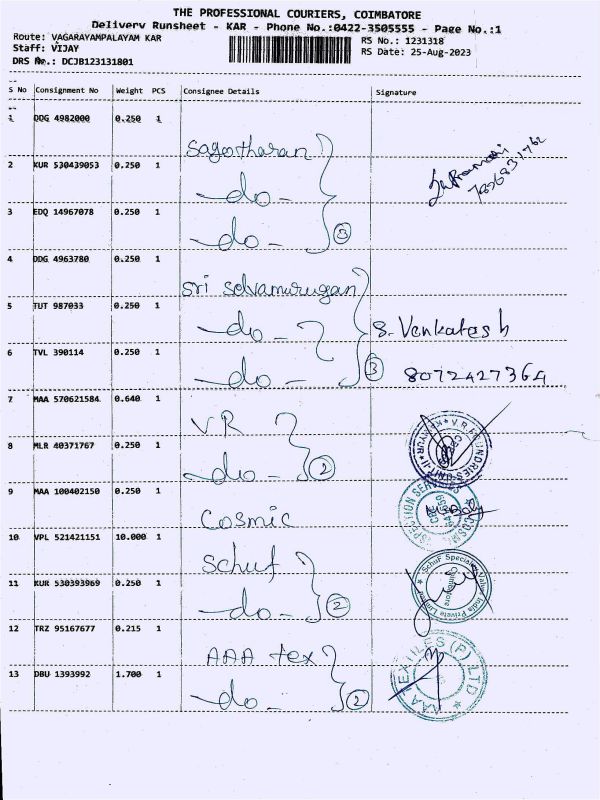 THE PROFESSIONAL COURIERS, COIMBATORE
Delivery Runsheet - KAR - Phone No.:0422-3505555 - Page No.:1
Route: VAGARAYAMPALAYAM KAR RS No.: 1231318
Staff: VIJAY RS Date: 25-Aug-2023
DRS No.: DCJB123131801
S No Consignment No Weight PCS Consignee Details Signature
1 DDG 4982000 0.250 1 Sagotharan
2 KUR 530439053 0.250 1 -do-
3 EDQ 14967078 0.250 1 -do- 3
4 DDG 4963780 0.250 1 Sri Selvamurugan
5 TUT 987033 0.250 1 -do- S. Venkatesh
6 TVL 390114 0.250 1 -do- 3 8072427364
7 MAA 570621584 0.640 1 VR
8 MLR 40371767 0.250 1 -do- 2
9 MAA 100402150 0.250 1 Cosmic
10 VPL 521421151 10.000 1 Schuf
11 KUR 530393969 0.250 1 -do- 2
12 TRZ 95167677 0.215 1 AAA tex
13 DBU 1393992 1.700 1 -do- 2